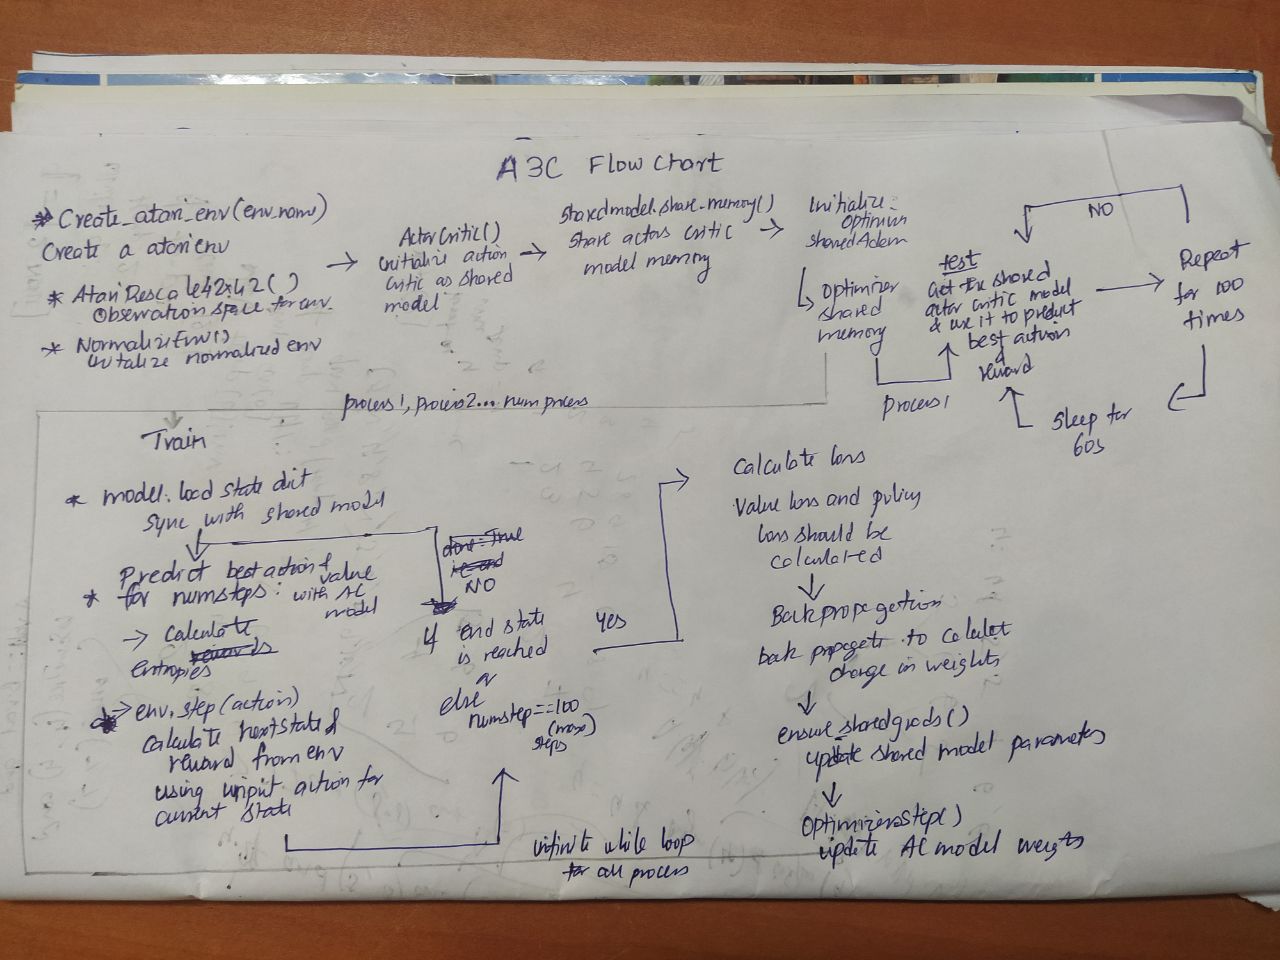 A3C Flow Chart
* Create_atari_env(env_name)
Create a atari env
* AtariRescale42x42()
Observation space for env.
* NormalizeEnv()
initalize normalized env
ActorCritic()
initialize action
critic as shared
model
Sharedmodel.share-memory()
share actors critic
model memory
Initialize:
Optimum
sharedAdam
Optimizer
shared
memory
test
get the shared
actor critic model
& use it to predict
best action
&
reward
NO
Repeat
for 100
times
Sleep for
60s
process1
process1, process2... num process
Train
* model.load state dict
sync with shared model
* Predict best action &
for numsteps: value
with AC
model
→ Calculate
entropies
→ env.step(action)
Calculate next state &
reward from env
using input action for
current state
done = True
NO
If end state
is reached
or
else
numstep==100
(max)
steps
yes
infinite while loop
for all process
Calculate loss
Value loss and policy
loss should be
calculated
Backpropagation
back propagate to calculate
change in weights
ensure_sharedgrads()
update shared model parameters
OptimizerStep()
update AC model weights